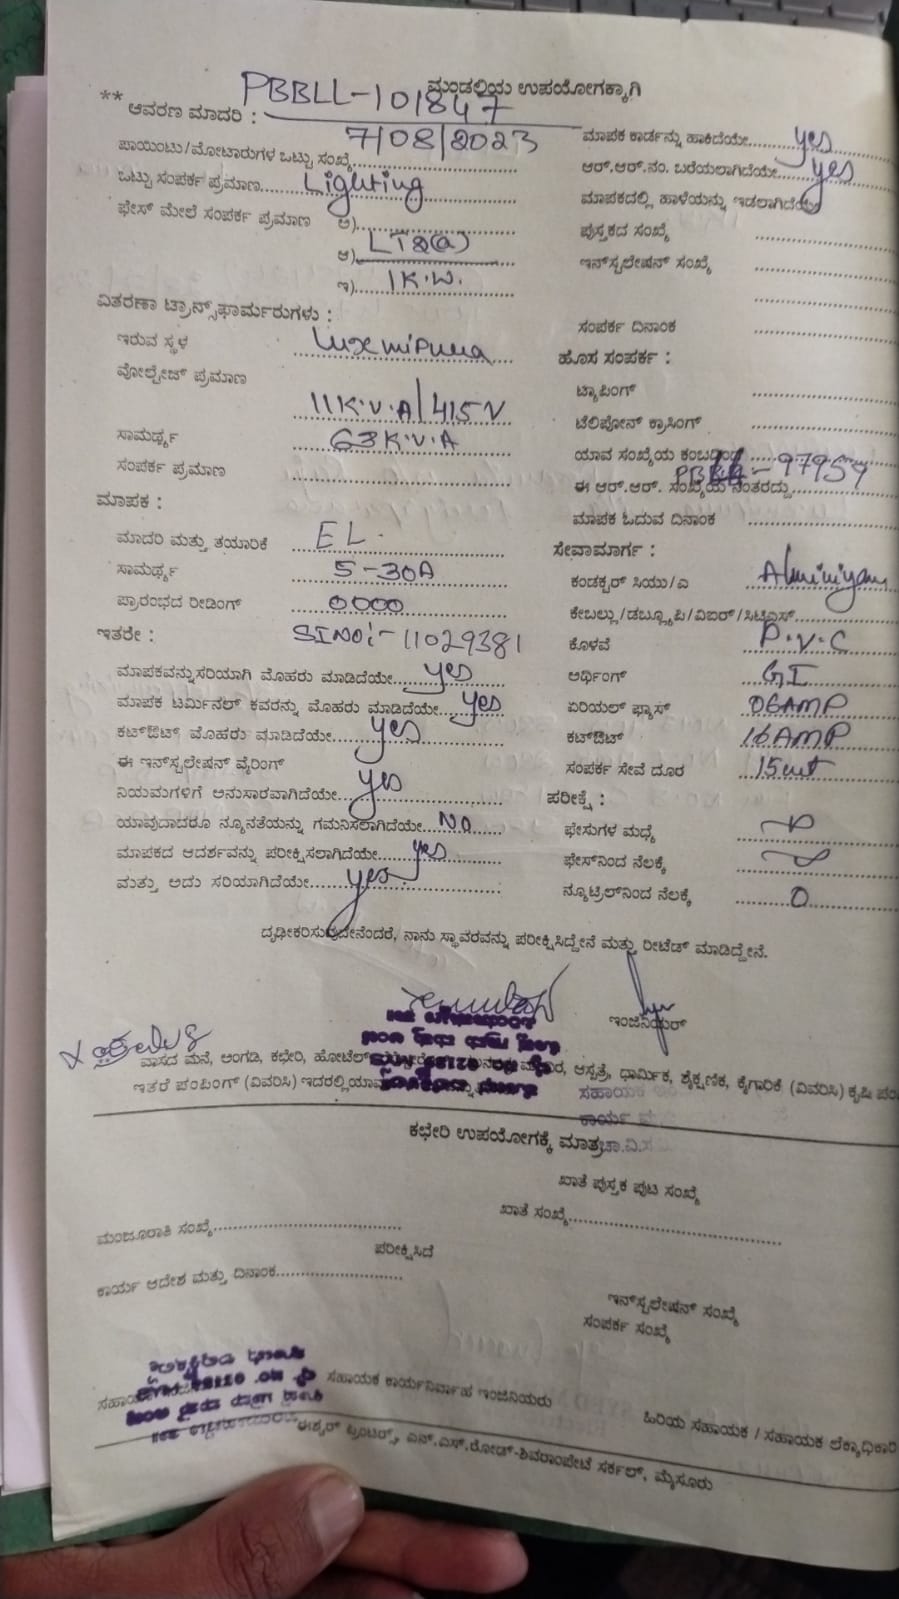 PBBLL-101847
ಮಂಡಲಿಯ ಉಪಯೋಗಕ್ಕಾಗಿ
** ಆವರಣ ಮಾದರಿ :
7/08/2023
ಮಾಪಕ ಕಾರ್ಡನ್ನು ಹಾಕಿದೆಯೇ..... yes
ಪಾಯಿಂಟು/ಮೋಟಾರುಗಳ ಒಟ್ಟು ಸಂಖ್ಯೆ
ಆರ್.ಆರ್.ನಂ. ಬರೆಯಲಾಗಿದೆಯೇ..... yes
ಒಟ್ಟು ಸಂಪರ್ಕ ಪ್ರಮಾಣ..... Lighting
ಮಾಪಕದಲ್ಲಿ ಹಾಳೆಯನ್ನು ಇಡಲಾಗಿದೆಯೇ
ಫೇಸ್ ಮೇಲೆ ಸಂಪರ್ಕ ಪ್ರಮಾಣ ಅ)
ಪುಸ್ತಕದ ಸಂಖ್ಯೆ
ಆ) LT2(a)
ಇನ್‌ಸ್ಟಲೇಷನ್ ಸಂಖ್ಯೆ
ಇ) 1K.W.
ವಿತರಣಾ ಟ್ರಾನ್ಸ್‌ಫಾರ್ಮರುಗಳು :
ಸಂಪರ್ಕ ದಿನಾಂಕ
ಇರುವ ಸ್ಥಳ
ಹೊಸ ಸಂಪರ್ಕ :
ವೋಲ್ಟೇಜ್ ಪ್ರಮಾಣ
ಟ್ಯಾಪಿಂಗ್
11K.V.A/415V
ಟೆಲಿಫೋನ್ ಕ್ರಾಸಿಂಗ್
ಸಾಮರ್ಥ್ಯ 63K.V.A
ಯಾವ ಸಂಖ್ಯೆಯ ಕಂಬದಿಂದ
ಸಂಪರ್ಕ ಪ್ರಮಾಣ
ಈ ಆರ್.ಆರ್. ಸಂಖ್ಯೆಯ ನಂತರದ್ದು
ಮಾಪಕ :
ಮಾಪಕ ಓದುವ ದಿನಾಂಕ
ಮಾದರಿ ಮತ್ತು ತಯಾರಿಕೆ EL.
ಸೇವಾಮಾರ್ಗ :
ಸಾಮರ್ಥ್ಯ 5-30A
ಕಂಡಕ್ಟರ್ ಸಿಯು/ಎ Alminiyam
ಪ್ರಾರಂಭದ ರೀಡಿಂಗ್ 0000
ಕೇಬಲ್ಲು/ಡಬ್ಲ್ಯೂಪಿ/ವಿಐಆರ್/ಸಿಟಿಎಸ್
ಇತರೇ : SINO:-11029381
ಕೊಳವೆ P.V.C
ಮಾಪಕವನ್ನು ಸರಿಯಾಗಿ ಮೊಹರು ಮಾಡಿದೆಯೇ.... yes
ಅರ್ಥಿಂಗ್ GI
ಮಾಪಕ ಟರ್ಮಿನಲ್ ಕವರನ್ನು ಮೊಹರು ಮಾಡಿದೆಯೇ.... yes
ಏರಿಯಲ್ ಫ್ಯೂಸ್ 06AMP
ಕಟ್‌ಔಟ್ ಮೊಹರು ಮಾಡಿದೆಯೇ.... yes
ಕಟ್‌ಔಟ್ 16AMP
ಈ ಇನ್‌ಸ್ಟಲೇಷನ್ ವೈರಿಂಗ್
ಸಂಪರ್ಕ ಸೇವೆ ದೂರ 15mt
ನಿಯಮಗಳಿಗೆ ಅನುಸಾರವಾಗಿದೆಯೇ.... yes
ಪರೀಕ್ಷೆ :
ಯಾವುದಾದರೂ ನ್ಯೂನತೆಯನ್ನು ಗಮನಿಸಲಾಗಿದೆಯೇ... NO
ಫೇಸುಗಳ ಮಧ್ಯೆ
ಮಾಪಕದ ಆದರ್ಶವನ್ನು ಪರೀಕ್ಷಿಸಲಾಗಿದೆಯೇ.... yes
ಫೇಸ್‌ನಿಂದ ನೆಲಕ್ಕೆ
ಮತ್ತು ಅದು ಸರಿಯಾಗಿದೆಯೇ.... yes
ನ್ಯೂಟ್ರಲ್‌ನಿಂದ ನೆಲಕ್ಕೆ 0
ದೃಢೀಕರಿಸುವುದೇನೆಂದರೆ, ನಾನು ಸ್ಥಾವರವನ್ನು ಪರೀಕ್ಷಿಸಿದ್ದೇನೆ ಮತ್ತು ರೀಟೆಡ್ ಮಾಡಿದ್ದೇನೆ.
ಇಂಜಿನಿಯರ್
ವಾಸದ ಮನೆ, ಅಂಗಡಿ, ಕಛೇರಿ, ಹೋಟೆಲ್ ಆಸ್ಪತ್ರೆ, ಧಾರ್ಮಿಕ, ಶೈಕ್ಷಣಿಕ, ಕೈಗಾರಿಕೆ (ವಿವರಿಸಿ) ಕೃಷಿ
ಇತರೆ ಪಂಪಿಂಗ್ (ವಿವರಿಸಿ) ಇದರಲ್ಲಿ
ಸಹಾಯಕ
ಕಾರ್ಯ
ಕಛೇರಿ ಉಪಯೋಗಕ್ಕೆ ಮಾತ್ರ
ಖಾತೆ ಪುಸ್ತಕ ಪುಟ ಸಂಖ್ಯೆ
ಮಂಜೂರಾತಿ ಸಂಖ್ಯೆ
ಖಾತೆ ಸಂಖ್ಯೆ
ಪರೀಕ್ಷಿಸಿದೆ
ಕಾರ್ಯ ಆದೇಶ ಮತ್ತು ದಿನಾಂಕ
ಇನ್‌ಸ್ಟಲೇಷನ್ ಸಂಖ್ಯೆ
ಸಂಪರ್ಕ ಸಂಖ್ಯೆ
ಸಹಾಯಕ ಕಾರ್ಯನಿರ್ವಾಹ ಇಂಜಿನಿಯರು
ಹಿರಿಯ ಸಹಾಯಕ / ಸಹಾಯಕ ಲೆಕ್ಕಾಧಿಕಾರಿ
ಈಶ್ವರ್ ಪ್ರಿಂಟರ್ಸ್, ಎನ್.ಎಸ್.ರೋಡ್-ಶಿವರಾಂಪೇಟೆ ಸರ್ಕಲ್, ಮೈಸೂರು